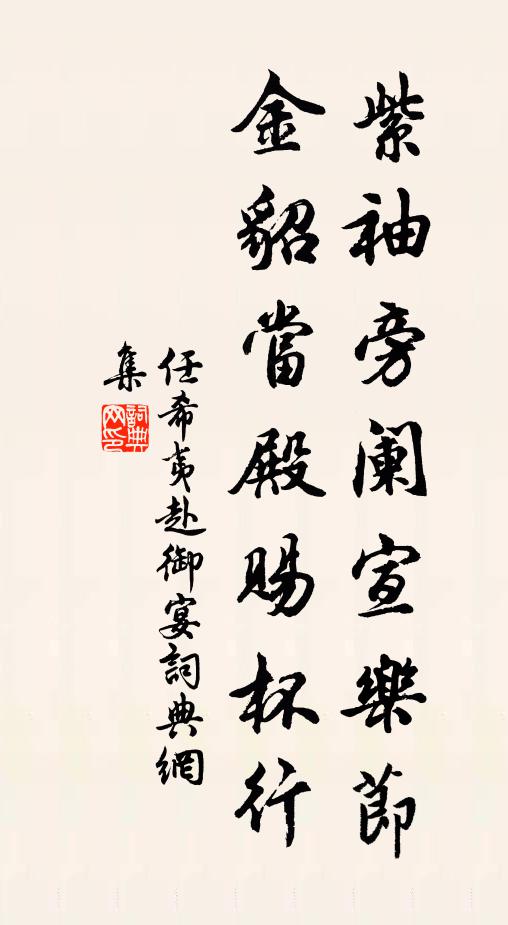 紫袖旁阑宣樂節
金貂當殿賜杯行
任希夷赴御宴詞典網
集
詞典网印